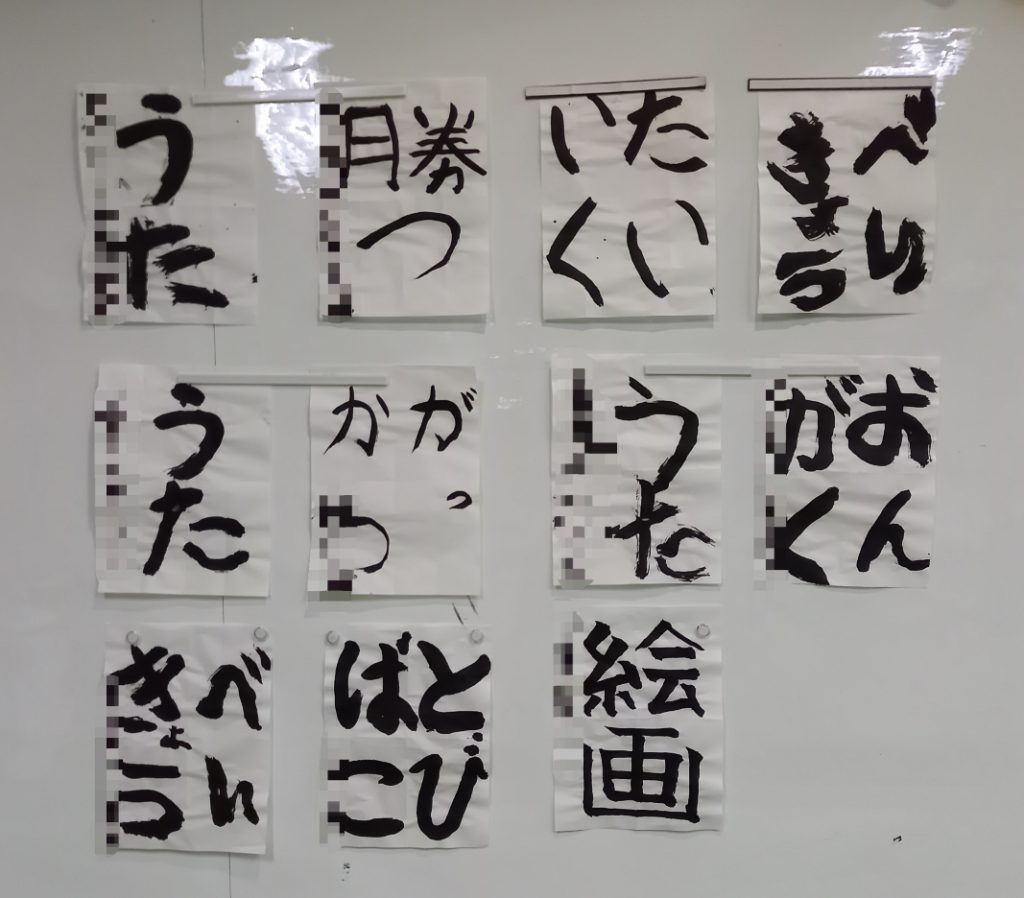 うた
勝つ
たい
いく
べん
きょう
うた
がっ
かつ
うた
おん
がく
べん
きょう
とび
ばこ
絵画